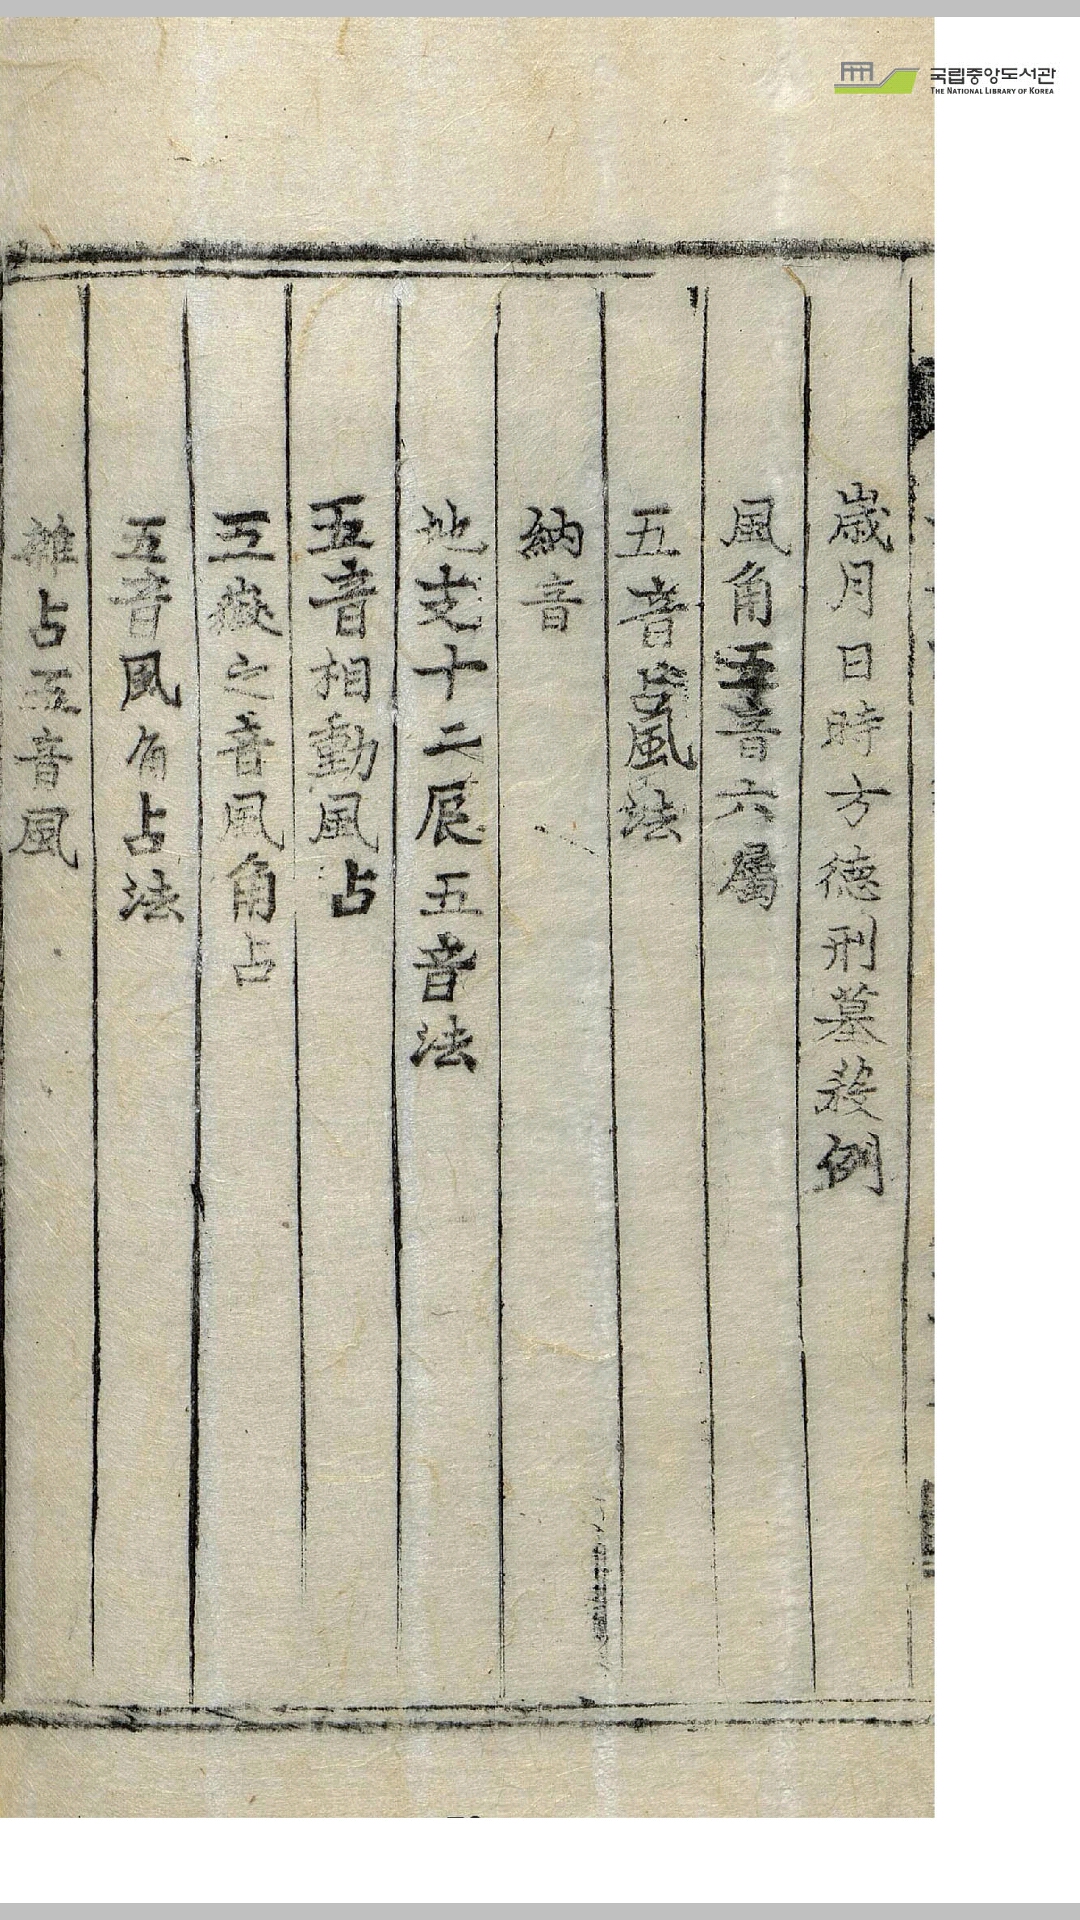 국립중앙도서관
THE NATIONAL LIBRARY OF KOREA
歲月日時方德刑墓殺例
風角五音六屬
五音占風法
納音
地支十二辰五音法
五音相動風占
五嶽之音風角占
五音風角占法
雜占五音風